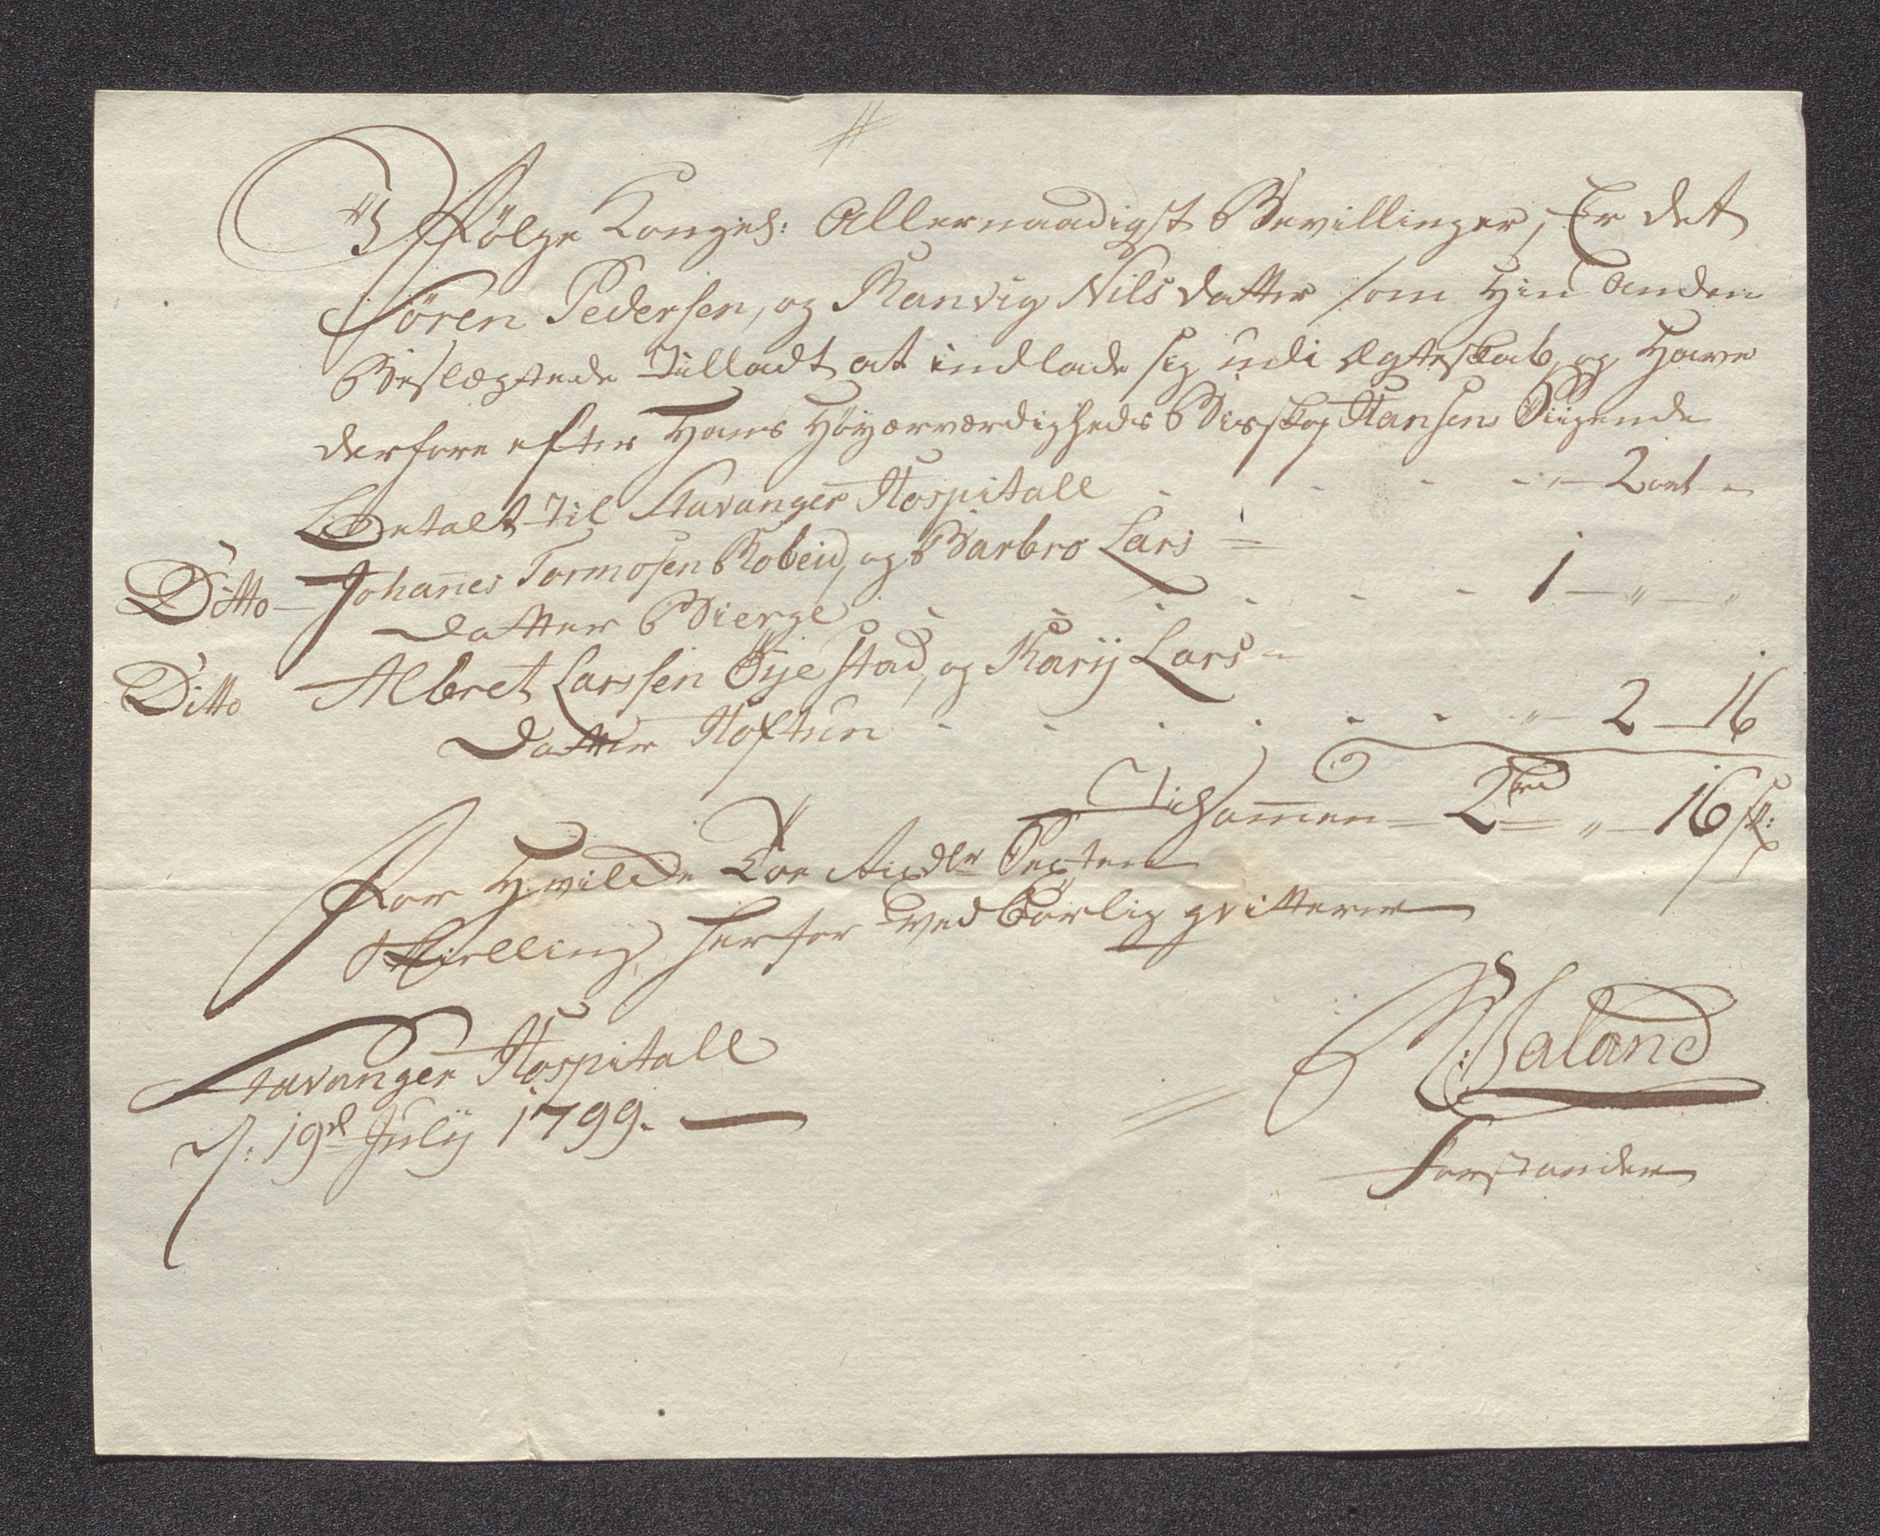 I Følge Kongel: Allernaadigst Bevillinger, Er det
Sören Pedersen, og Ranvig Nils datter som Hin anden
Beslægtede Tilladt at indlade sig udi Ægteskab, og Have
derfore efter Hans Höyærværdigheds Bisskop Hansens Siigende
Betalt Til Stavanger Hospitall - - - - " - 2 ort -
Ditto - Johannes Tormosen Robeid, og Barbro Lars =
datter Bierge - - - - - 1 - " - "
Ditto Albret Larssen Öÿestad, og Karÿ Lars -
datter Hoftun - - - - - - " - 2 - 16
Tilsammen - 2 rd = " - 16 sk:
For Hvilde Toe Rixdlr Sexten
Skielling, herfor ved Börlig qvitterer
Stavanger Hospitall
d: 19d Julÿ 1799. -
Waland
Forstander